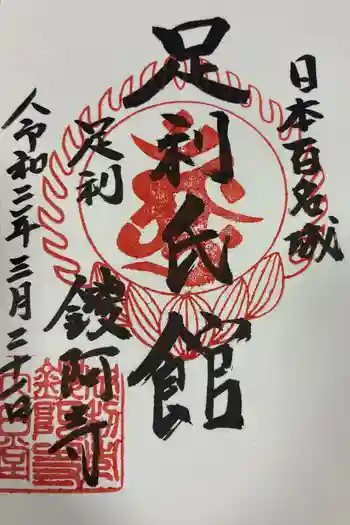 日本百名城
足利氏館
足利
鑁阿寺
令和二年三月二十七日